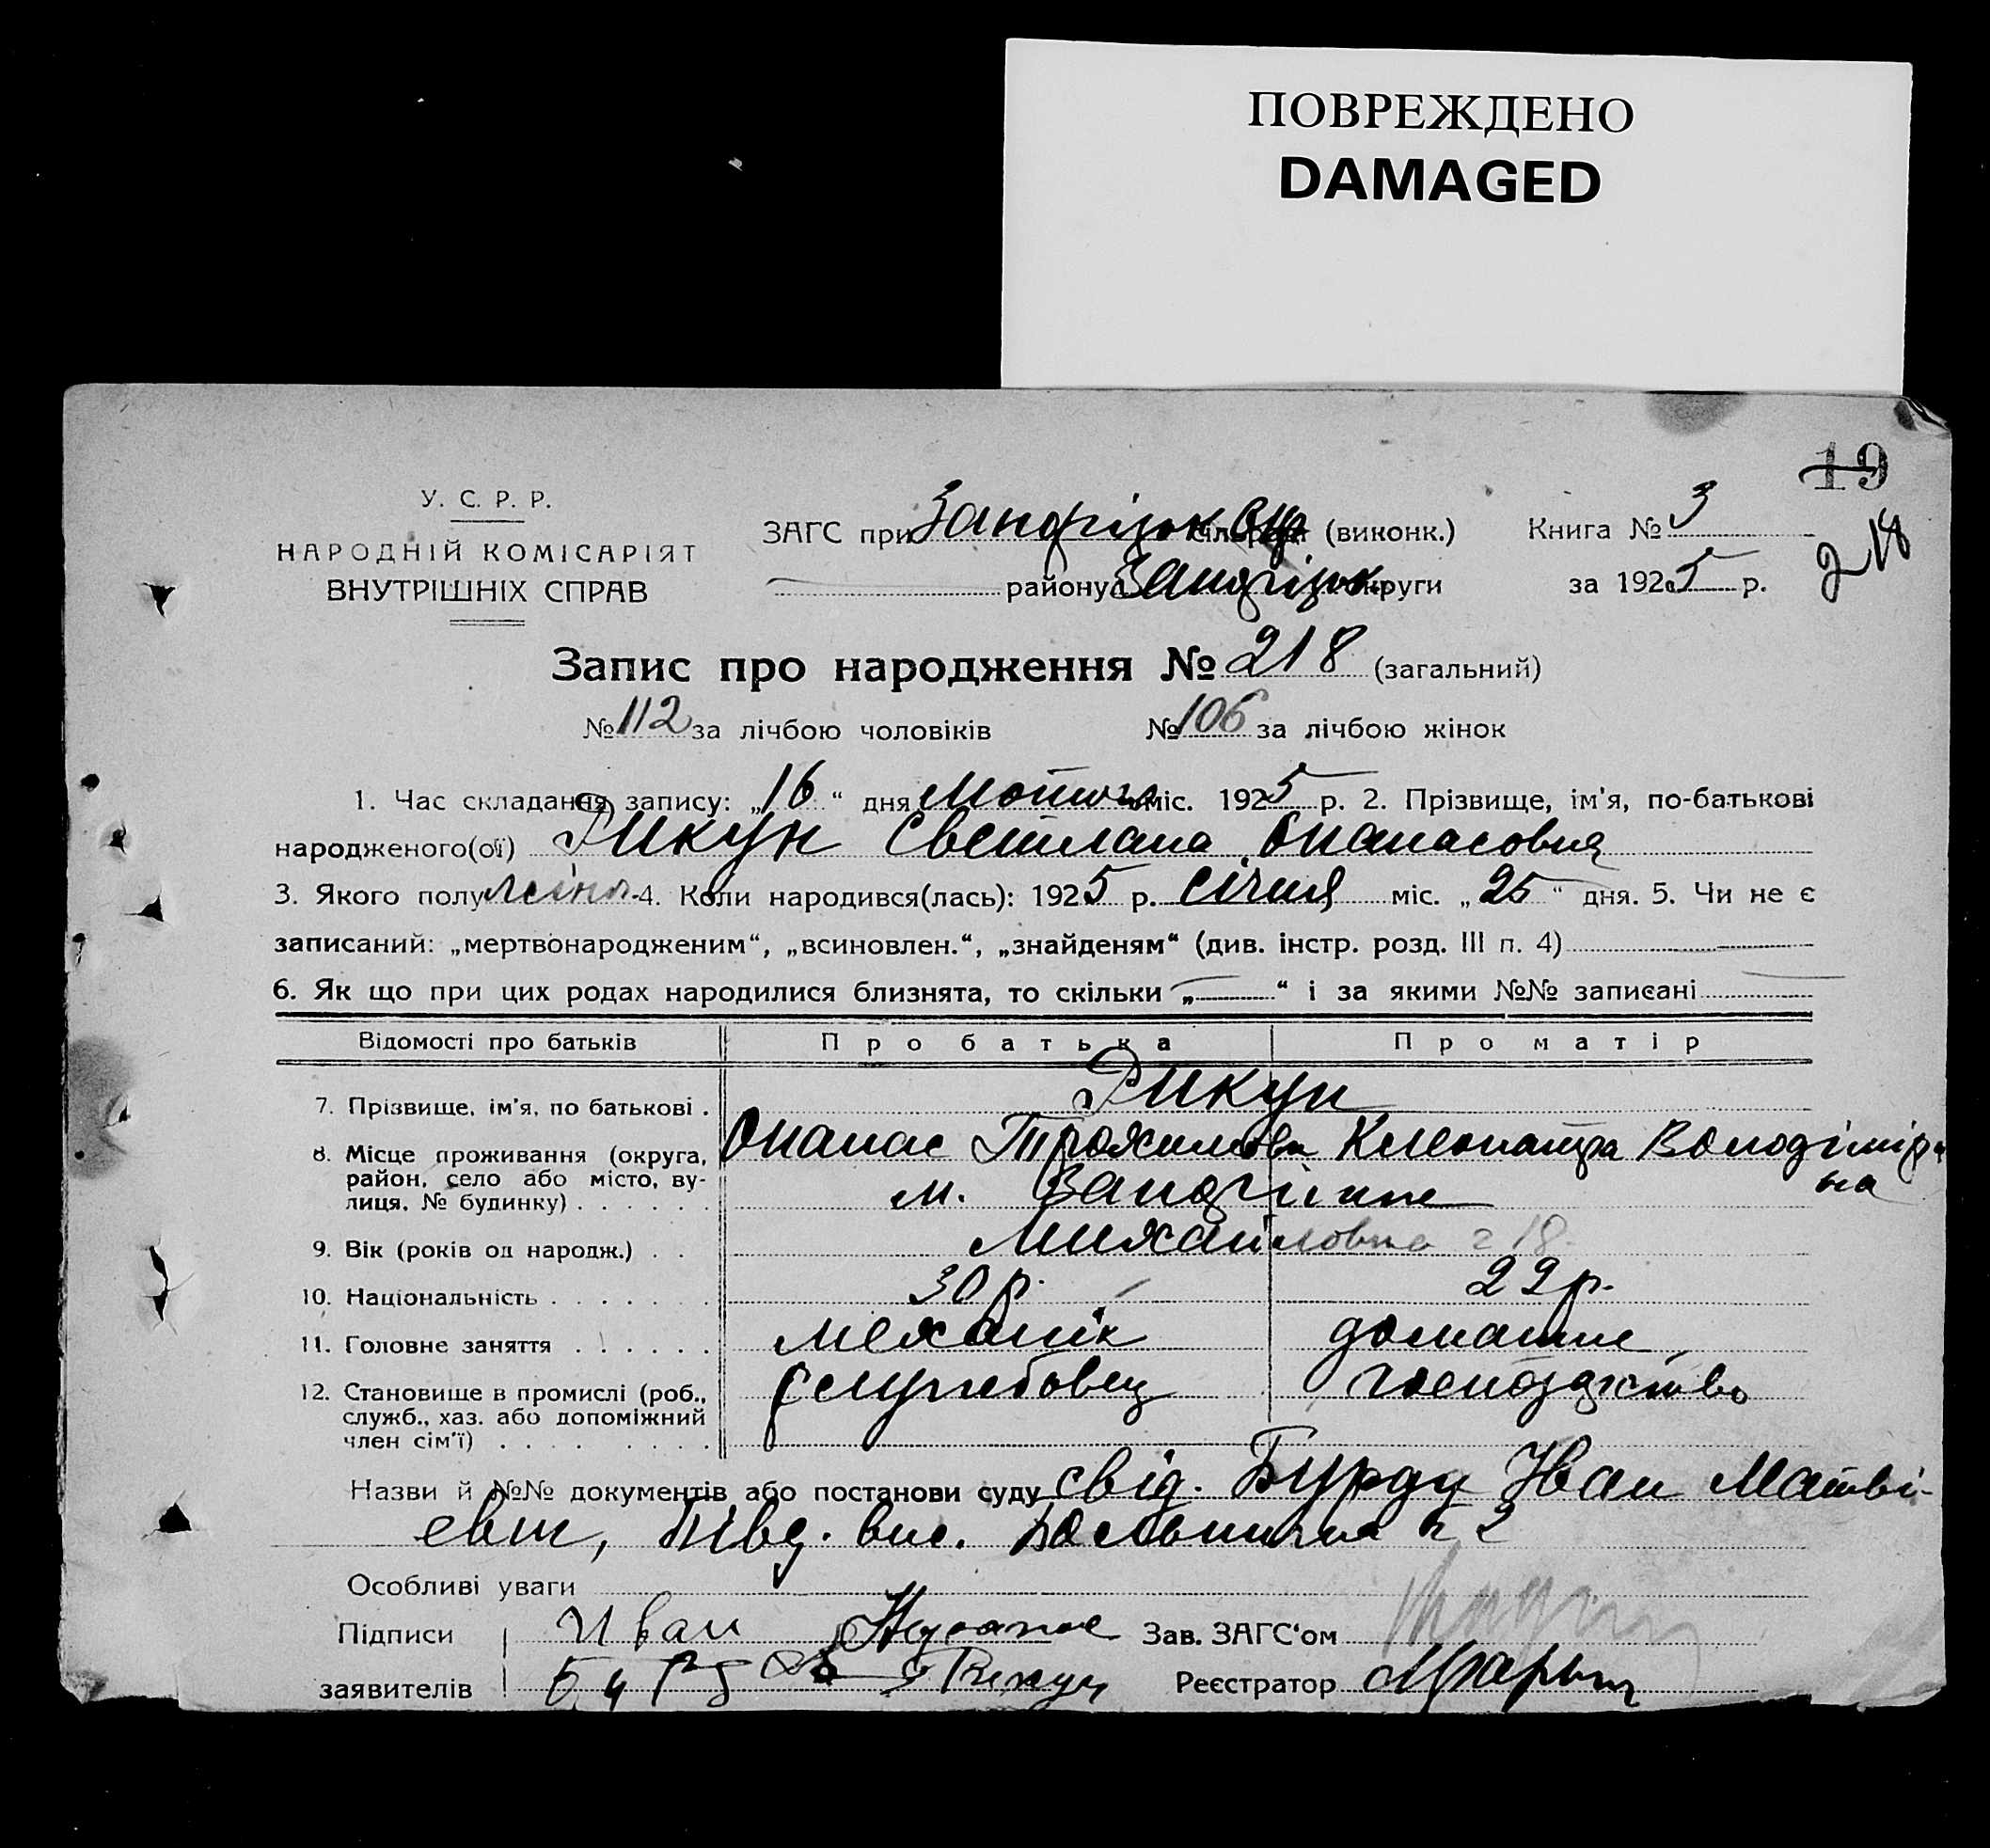 ПОВРЕЖДЕНО
DAMAGED
19
У. С. Р. Р.
НАРОДНІЙ КОМІСАРІЯТ
ВНУТРІШНІХ СПРАВ
ЗАГС при (виконк.)
району округи
Книга № 3
за 1925 р.
218
Запис про народження № 218 (загальний)
№ 112 за лічбою чоловіків № 106 за лічбою жінок
1. Час складання запису: „16“ дня міс. 1925 р. 2. Прізвище, ім'я, по-батькові
народженого(ої) Рикун Светлана Опанасовна
3. Якого полу жіно. 4. Коли народився(лась): 1925 р. січня міс. „25“ дня. 5. Чи не є
записаний: „мертвонародженим“, „всиновлен.“, „знайденям“ (див. інстр. розд. III п. 4)
6. Як що при цих родах народилися близнята, то скільки „ “ і за якими №№ записані
Відомості про батьків Про батька Про матір
7. Прізвище, ім'я, по батькові . Рикун
Опанас Клеопатра Володімір
вна
8. Місце проживання (округа,
район, село або місто, ву-
лиця, № будинку) . . . . . .
м. Запоріжжє
9. Вік (років од народж.) . . Михайловна 18
10. Національність . . . . . . . 30 р. 22 р.
11. Головне заняття . . . . . . механік домашнє
12. Становище в промислі (роб.,
служб., хаз. або допоміжний
член сім'ї) . . . . . . . .
служебовец господжство
Назви й №№ документів або постанови суду свід. Бурду Иван Матві-
евич, 2
Особливі уваги
Підписи Иван Зав. ЗАГС‘ом
заявителів Рикун Реєстратор